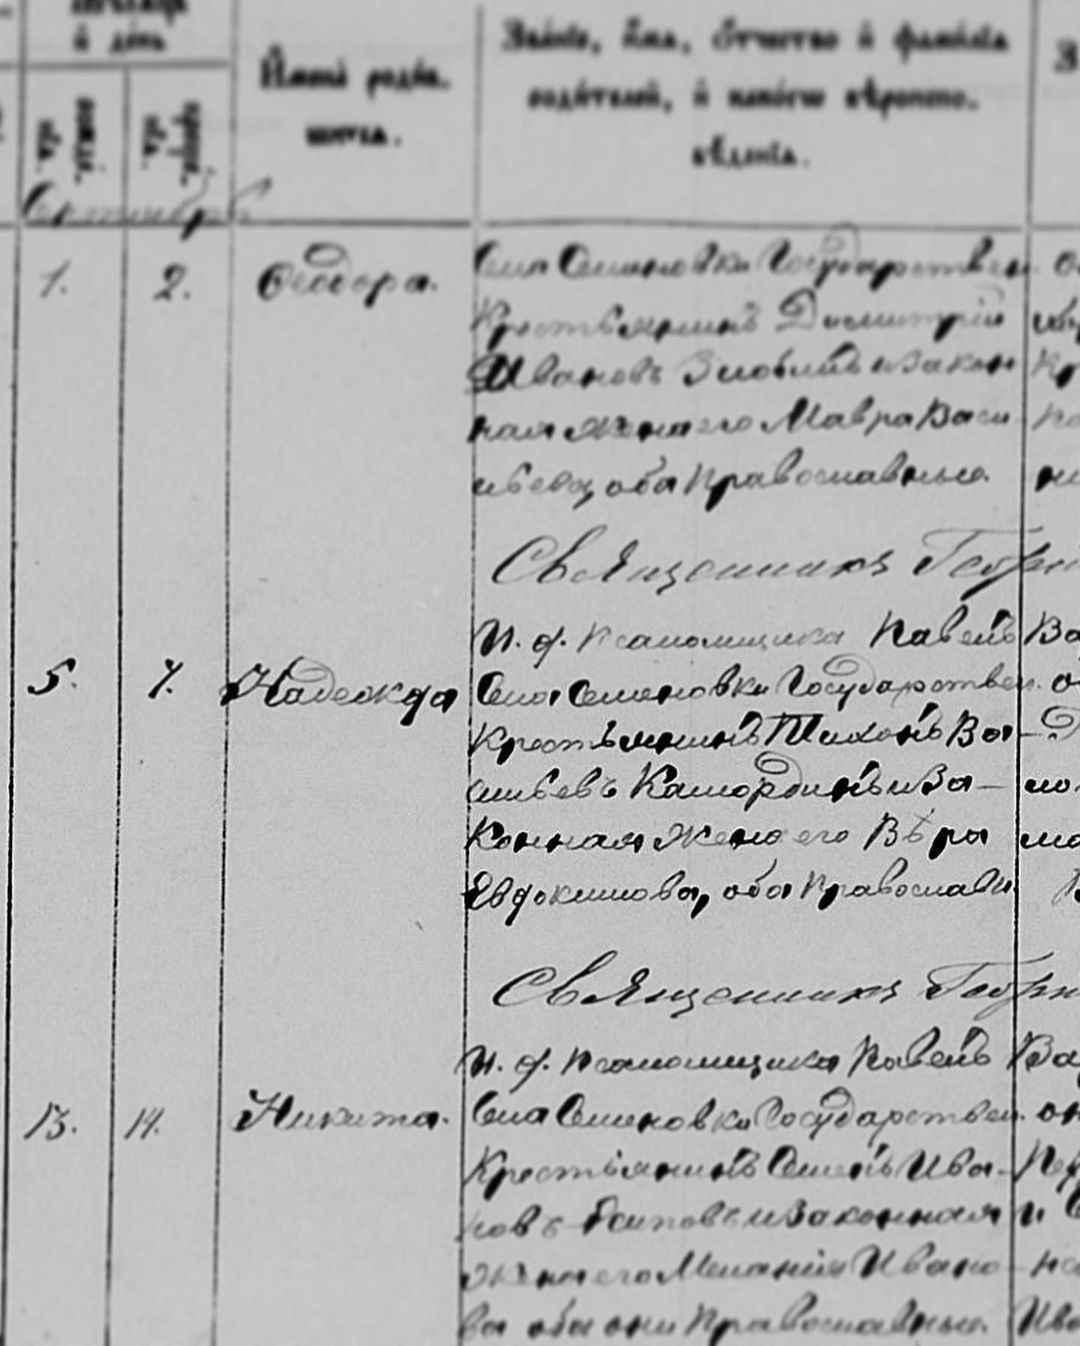 мѣсяца
и день
Имена роди-
шихся.
Званіе, имя, отчество и фамилія
родителей, и какого вѣроиспо-
вѣданія.
рожде-
нія.
креще-
нія.
Октябрь
1. 2. Ѳеодора. Села Семеновки Государствен.
Крестьянинъ Димитрій
Ивановъ и Закон
ная жена его Мавра Васи
льева, оба Православные.
Священникъ Геор
И. д. Псаломщика Павелъ Ва
5. 7. Надежда Села Семеновки Государствен.
Крестьянинъ Тихонъ Ва-
сильевъ Камордин и За-
конная жена его Вѣра
Евдокимова, оба Православн.
Священникъ Геор
И. д. Псаломщика Павелъ Ва
13. 14. Никита. Села Семеновки Государствен. он
Крестьянинъ Семенъ Ива-
новъ Осиповъ и Законная
жена его Меланія Ивано-
ва оба они Православные.